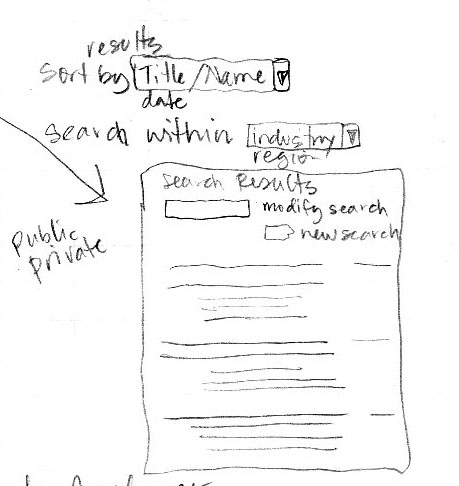 results
sort by Title/Name
date
search within industry
region
Search Results
modify search
new search
public
private